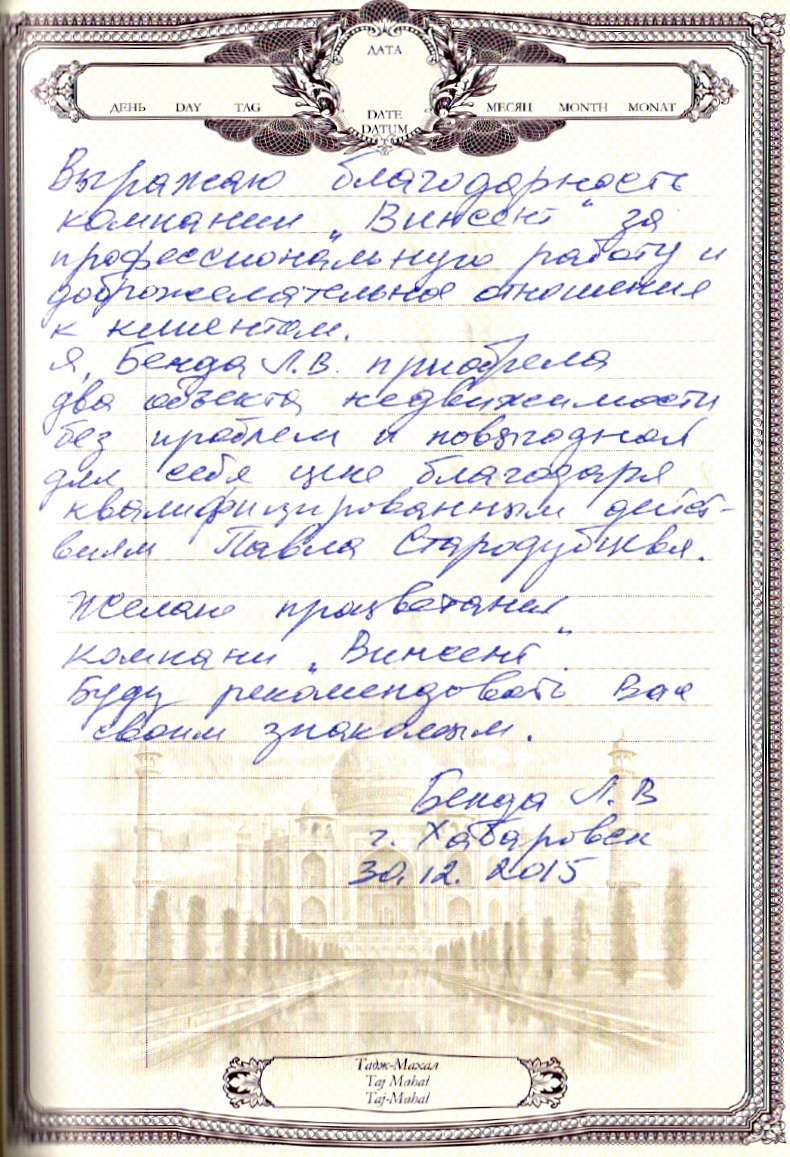 ДАТА
ДЕНЬ DAY TAG
DATE
DATUM
МЕСЯЦ MONTH MONAT
Выражаю благодарность
компании „Винсент“ за
профессиональную работу и
доброжелательное отношение
к клиентам.
Я, Бенда Л.В. приобрела
два объекта недвижимости
без проблем и по выгодной
для себя цене благодаря
квалифицированным дейст-
виям Павла Стародубцева.
Желаю процветания
компани „Винсент“.
Буду рекомендовать Вас
своим знакомым.
Бенда Л.В
г. Хабаровск
30.12. 2015
Тадж-Махал
Taj Mahal
Taj-Mahal